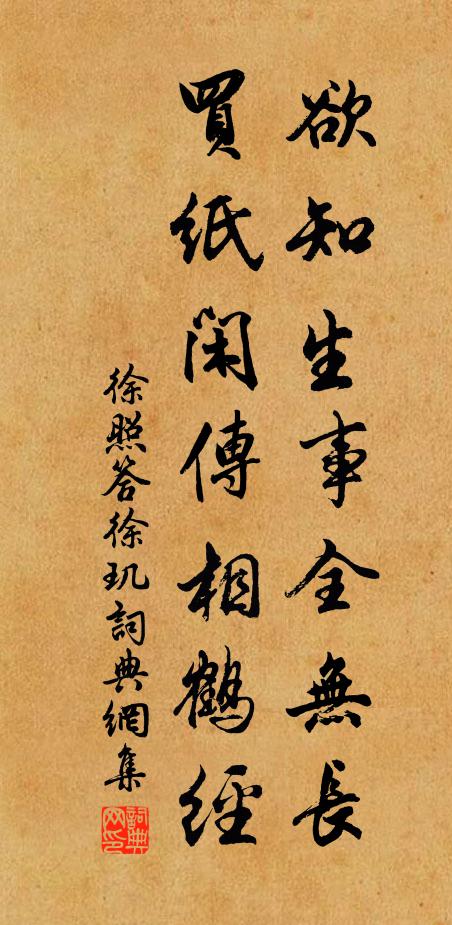 欲知生事全無長
買紙閑傳相鶴經
徐照答徐玑詞典網集
詞典网印